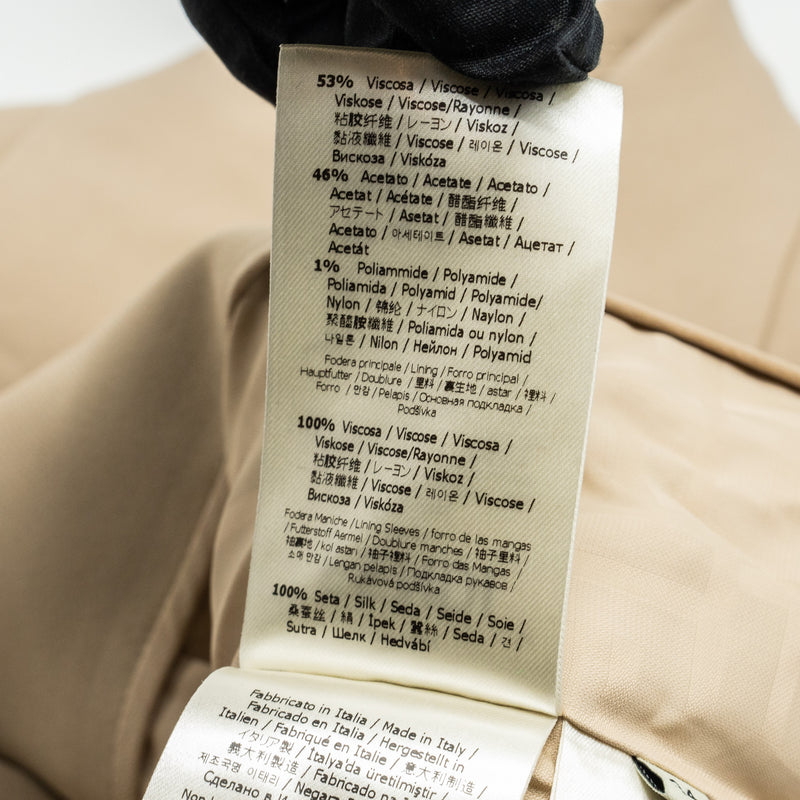 53% Viscosa / Viscose / Viscosa /
Viskose / Viscose/Rayonne /
粘胶纤维 / レーヨン / Viskoz /
黏液纖維 / Viscose / 레이온 / Viscose /
Вискоза / Viskóza
46% Acetato / Acetate / Acetato /
Acetat / Acétate / 醋酯纤维 /
アセテート / Asetat / 醋酯纖維 /
Acetato / 아세테이트 / Asetat / Ацетат /
Acetát
1% Poliammide / Polyamide /
Poliamida / Polyamid / Polyamide/
Nylon / 锦纶 / ナイロン / Naylon /
聚醯胺纖維 / Poliamida ou nylon /
나일론 / Nilon / Нейлон / Polyamid
Fodera principale / Lining / Forro principal /
Hauptfutter / Doublure / 里料 / 裏生地 / astar / 裡料 /
Forro / 안감 / Pelapis / Основная подкладка /
Podšívka
100% Viscosa / Viscose / Viscosa /
Viskose / Viscose/Rayonne /
粘胶纤维 / レーヨン / Viskoz /
黏液纖維 / Viscose / 레이온 / Viscose /
Вискоза / Viskóza
Fodera Maniche / Lining Sleeves / forro de las mangas
/ Futterstoff Aermel / Doublure manches / 袖子里料 /
袖裏地 / kol astarı / 袖子裡料 / Forro das Mangas /
소매 안감 / Lengan pelapis / Подкладка рукавов /
Rukávová podšívka
100% Seta / Silk / Seda / Seide / Soie /
桑蚕丝 / 絹 / İpek / 蠶絲 / Seda / 견 /
Sutra / Шелк / Hedvábí
Fabbricato in Italia / Made in Italy /
Fabricado en Italia / Hergestellt in
Italien / Fabriqué en Italie / 意大利制造 /
イタリア製 / İtalya'da üretilmiştir /
義大利製造 / Fabricado na
제조국명 이태리 /
Сделано в